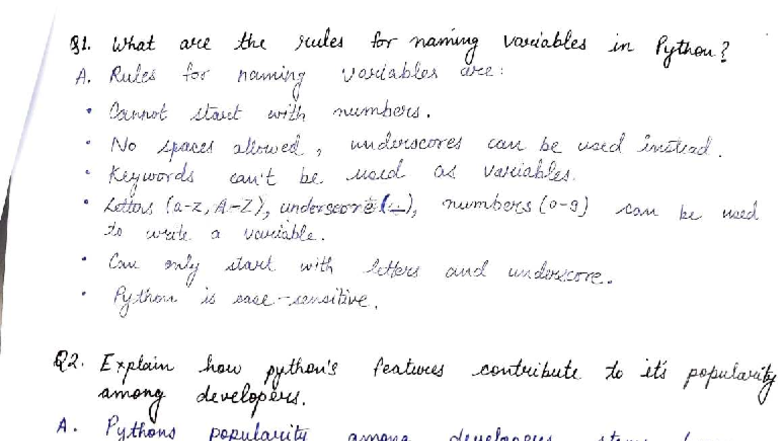 Q1. What are the rules for naming variables in Python?
A. Rules for naming variables are:
• Cannot start with numbers.
• No spaces allowed, underscores can be used instead.
• Keywords can't be used as variables.
• Letters (a-z, A-Z), underscore (_), numbers (0-9) can be used
to write a variable.
• Can only start with letters and underscore.
• Python is case-sensitive.
Q2. Explain how python's features contribute to it's popularity
among developers.
A. Pythons popularity among developers